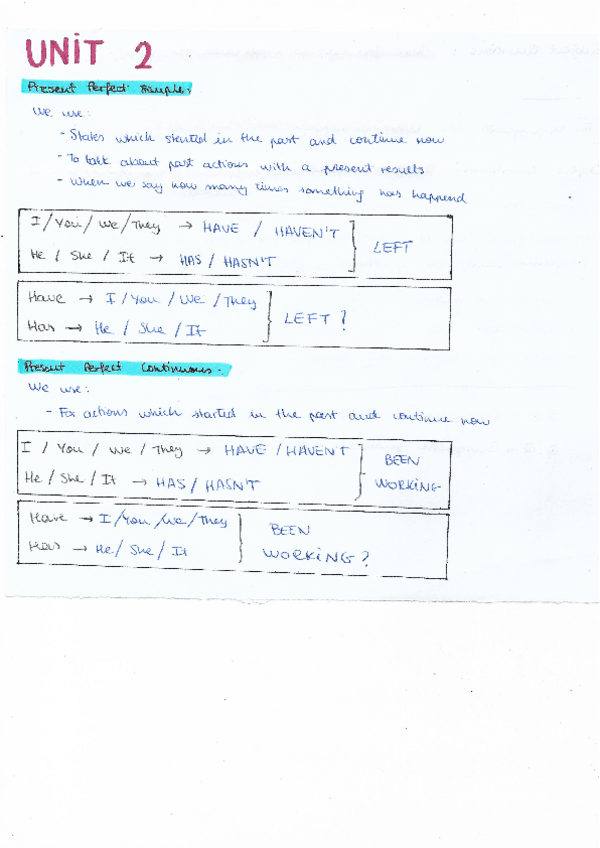 UNIT 2
Present Perfect Simple:
We use:
- States which started in the past and continue now
- To talk about past actions with a present results
- When we say how many times something has happend
I / You / We / They → HAVE / HAVEN'T
He / She / It → HAS / HASN'T
LEFT
Have → I / You / We / They
Has → He / She / It
LEFT ?
Present Perfect Continuous.
We use:
- For actions which started in the past and continue now
I / You / We / They → HAVE / HAVENT
He / She / It → HAS / HASN'T
BEEN
WORKING
Have → I / You / We / They
Has → He / She / It
BEEN
WORKING ?